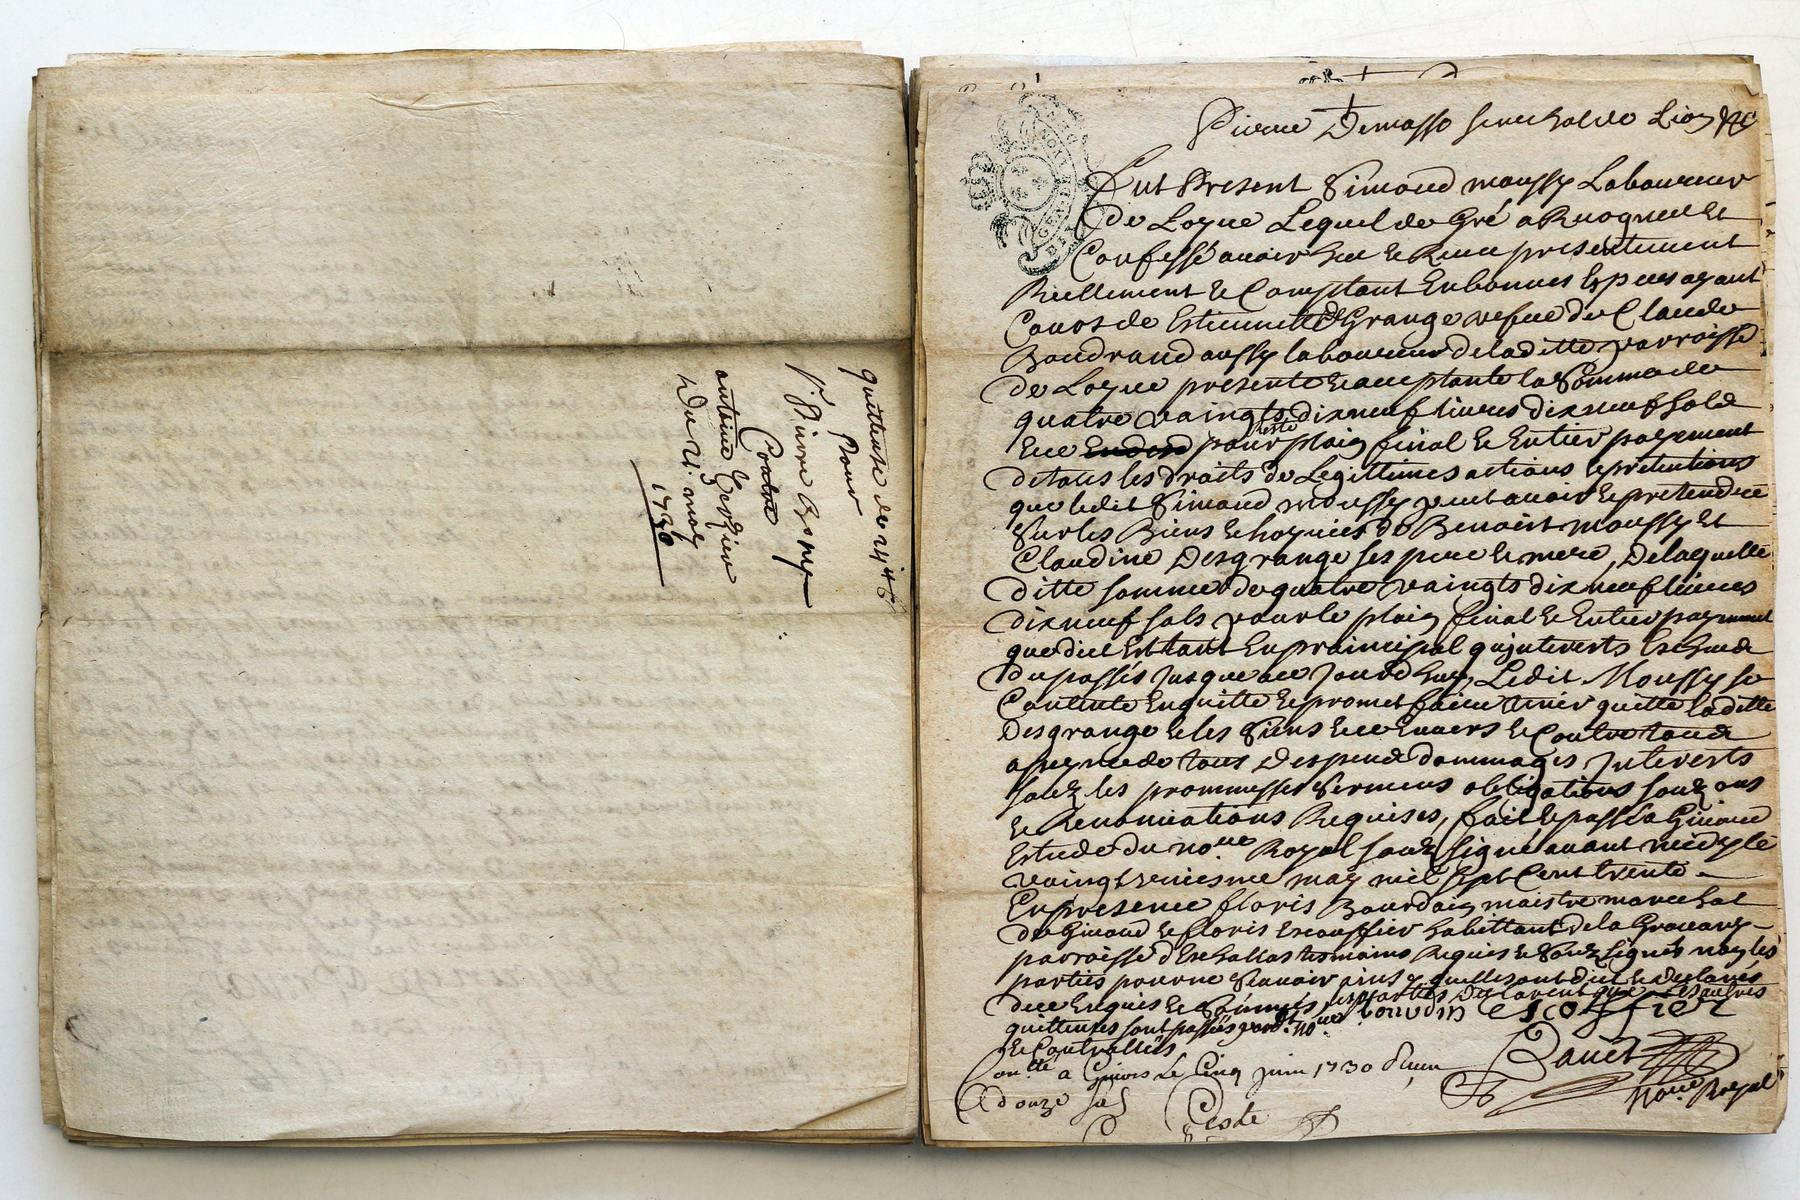 quittense de 24 ₶
Pour
Sr Pierre
Contre
antoine
Du 21: may
1730
Pierre Demasso senechal de Lion &c
GEN DE LION
Fut Present Simond moussy Laboureur
de Loyre Lequel de Gré a Recogneu et
Confessé avoir heu et Receu presentement
Reellement et Comptant En bonnes Especes ayant
Cours de Estiennette DesGrange vefue de Claude
Boudrand aussy laboureur de laditte parroisse
de Loyre presente et acceptante la Somme de
quatre vaingts dix neuf livres dix neuf sols
Et ce pour reste plain final et Entier payement
de tous les droits de Legittimes actions et pretentions
que ledit Simond moussy peut avoir et pretendre
Sur les Biens et hoyries de Benoist moussy et
Claudine Desgrange ses pere et mere, De laquelle
ditte somme de quatre vaingts dix neuf livres
dix neuf sols pour le plain final et Entier payement
que dict Estant En praincipal qu'jnterests Escheus
du passés jusques a ce jourd'huy Ledit Moussy se
Contente En quitte et promet faire tenir quitte laditte
Desgrange et les Siens Et ce Envers et Contre tous
a peyne de tous Despens dommages Interests
souz les prommesses Sermens obligations souz ons
et Renonciations Requises, fait et passé a Givord
Estude du nore Royal souz signé avant midy le
vaingt uniesme may mil Sept Cent trente
En presence floris Bourdain maistre marechal
de Givord et floris Escouffier habittant de la
parroisse d'Eschallas tesmoins Requis et Souz Signés non les
parties pour ne Scavoir ains y quelles ont dict et declarés
de ce Enquis et Sommés les parties Declarent que Les autres
quittences sont passées pard. noue bourdin escoffier
et Controllées
Conllé a Givors Le Cinq juin 1730 Reçu
douze sols
noue Royal